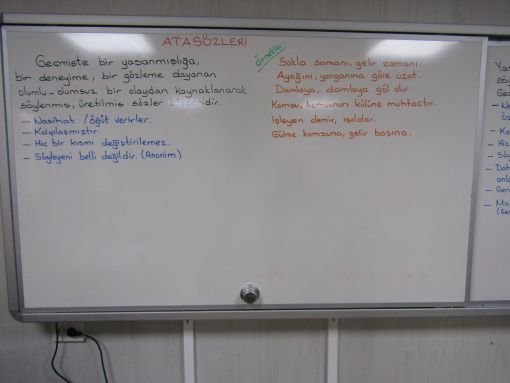 ATASÖZLERİ
Geçmişte bir yaşanmışlığa,
bir deneyime, bir gözleme dayanan
olumlu-olumsuz bir olaydan kaynaklanarak
söylenmiş, üretilmiş sözler
- Nasihat / öğüt verirler.
- Kalıplaşmıştır.
- Hiç bir kısmı değiştirilemez.
- Söyleyeni belli değildir. (Anonim)
Örnekler:
Sakla samanı, gelir zamanı.
Ayağını, yorganına göre uzat.
Damlaya, damlaya göl olur.
Komşu, komşunun külüne muhtaçtır.
İşleyen demir, ışıldar.
Gülme komşuna, gelir başına.